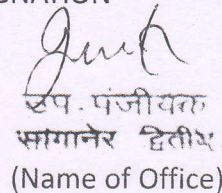 उप. पंजीयक
सांगानेर द्वितीय
(Name of Office)